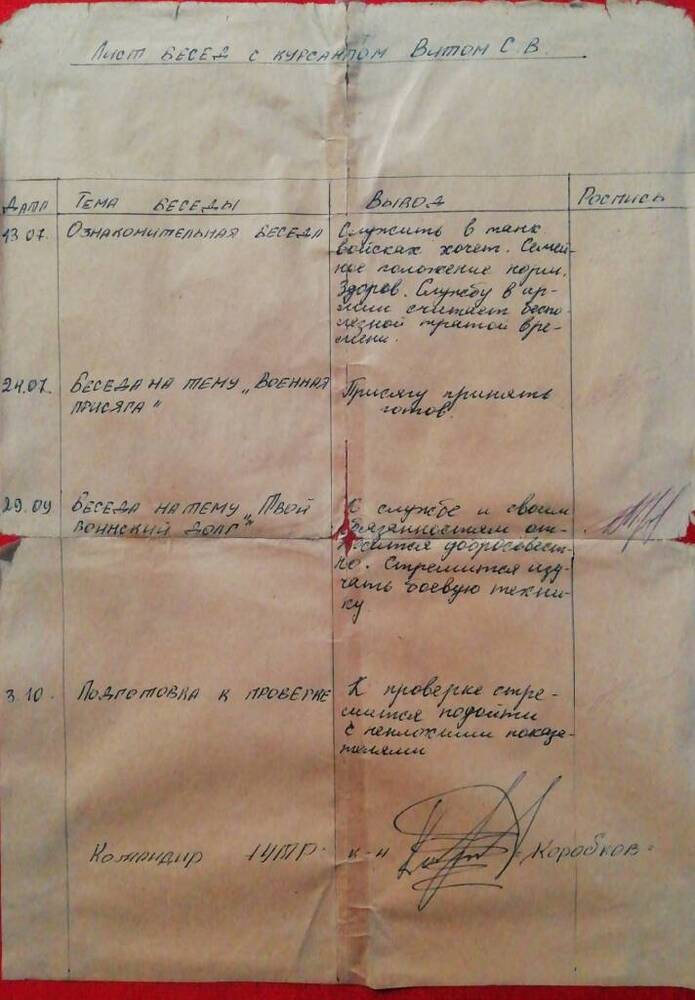 Лист бесед с курсантом Витом С. В.
Дата Тема беседы Вывод Роспись
13.07. Ознакомительная беседа Служить в танк
войсках хочет. Семей-
ное положение норм.
Здоров. Службу в ар-
мии считает беспо-
лезной тратой вре-
мени.
24.07. Беседа на тему „Военная Присягу принять
присяга" готов.
29.09 Беседа на тему „Твой К службе и своим
воинский долг" обязанностям от-
носится добросовест-
но. Стремится изу-
чать боевую техни-
ку
3.10. Подготовка к проверке К проверке стре-
мится подойти
с неплохими показа-
телями
Командир 1УТР к-н Коробков